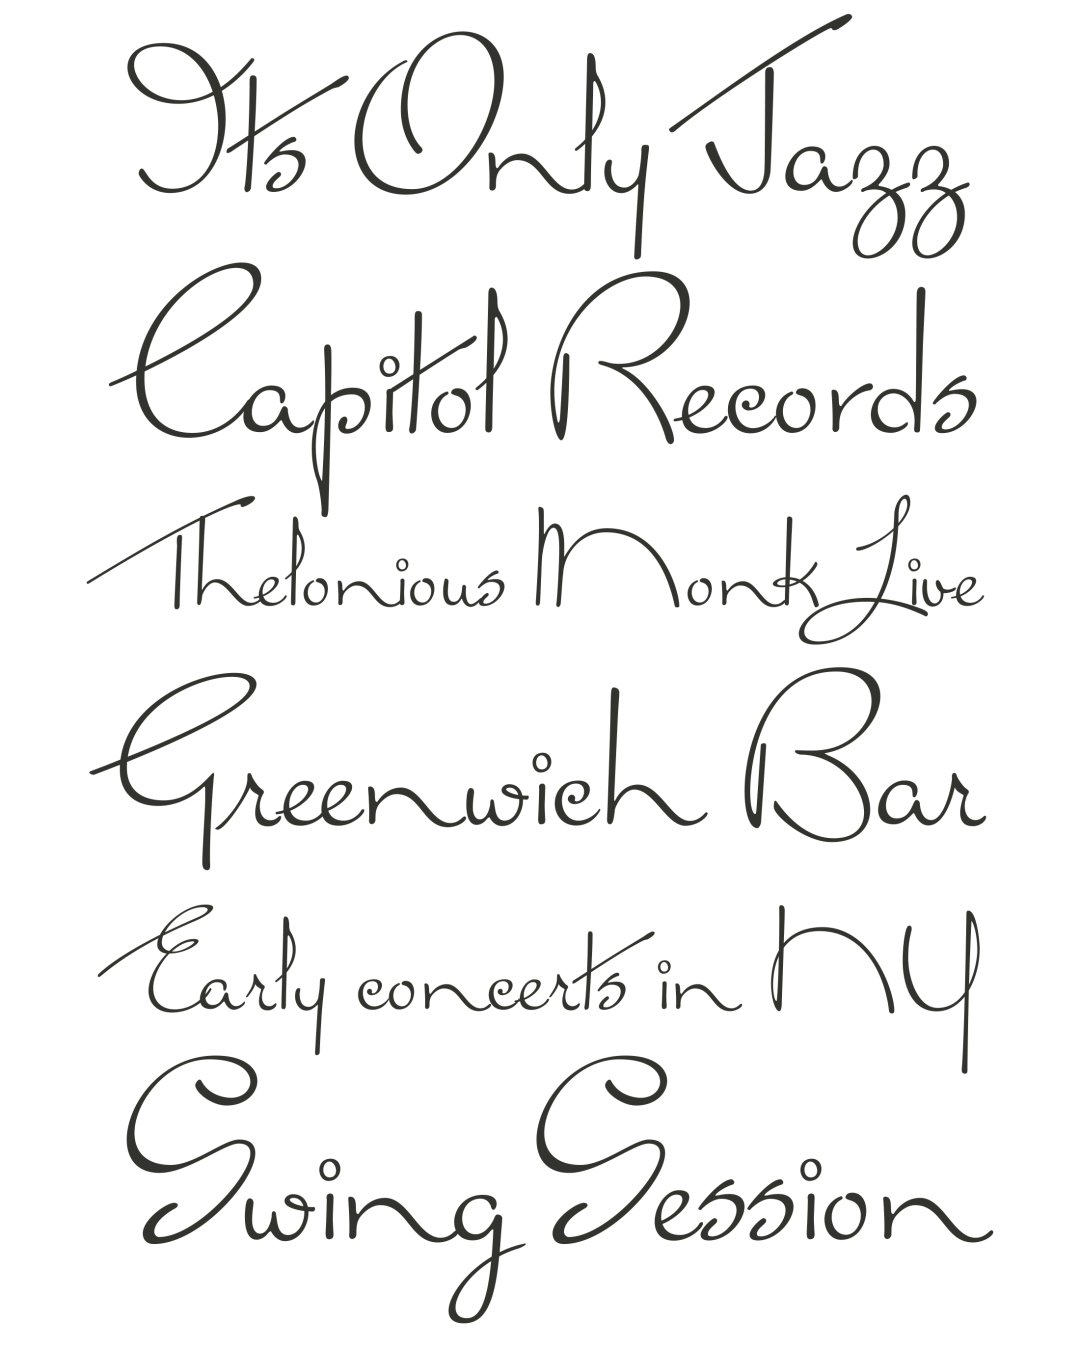 Its Only Jazz
Capitol Records
Thelonious Monk Live
Greenwich Bar
Early concerts in NY
Swing Session